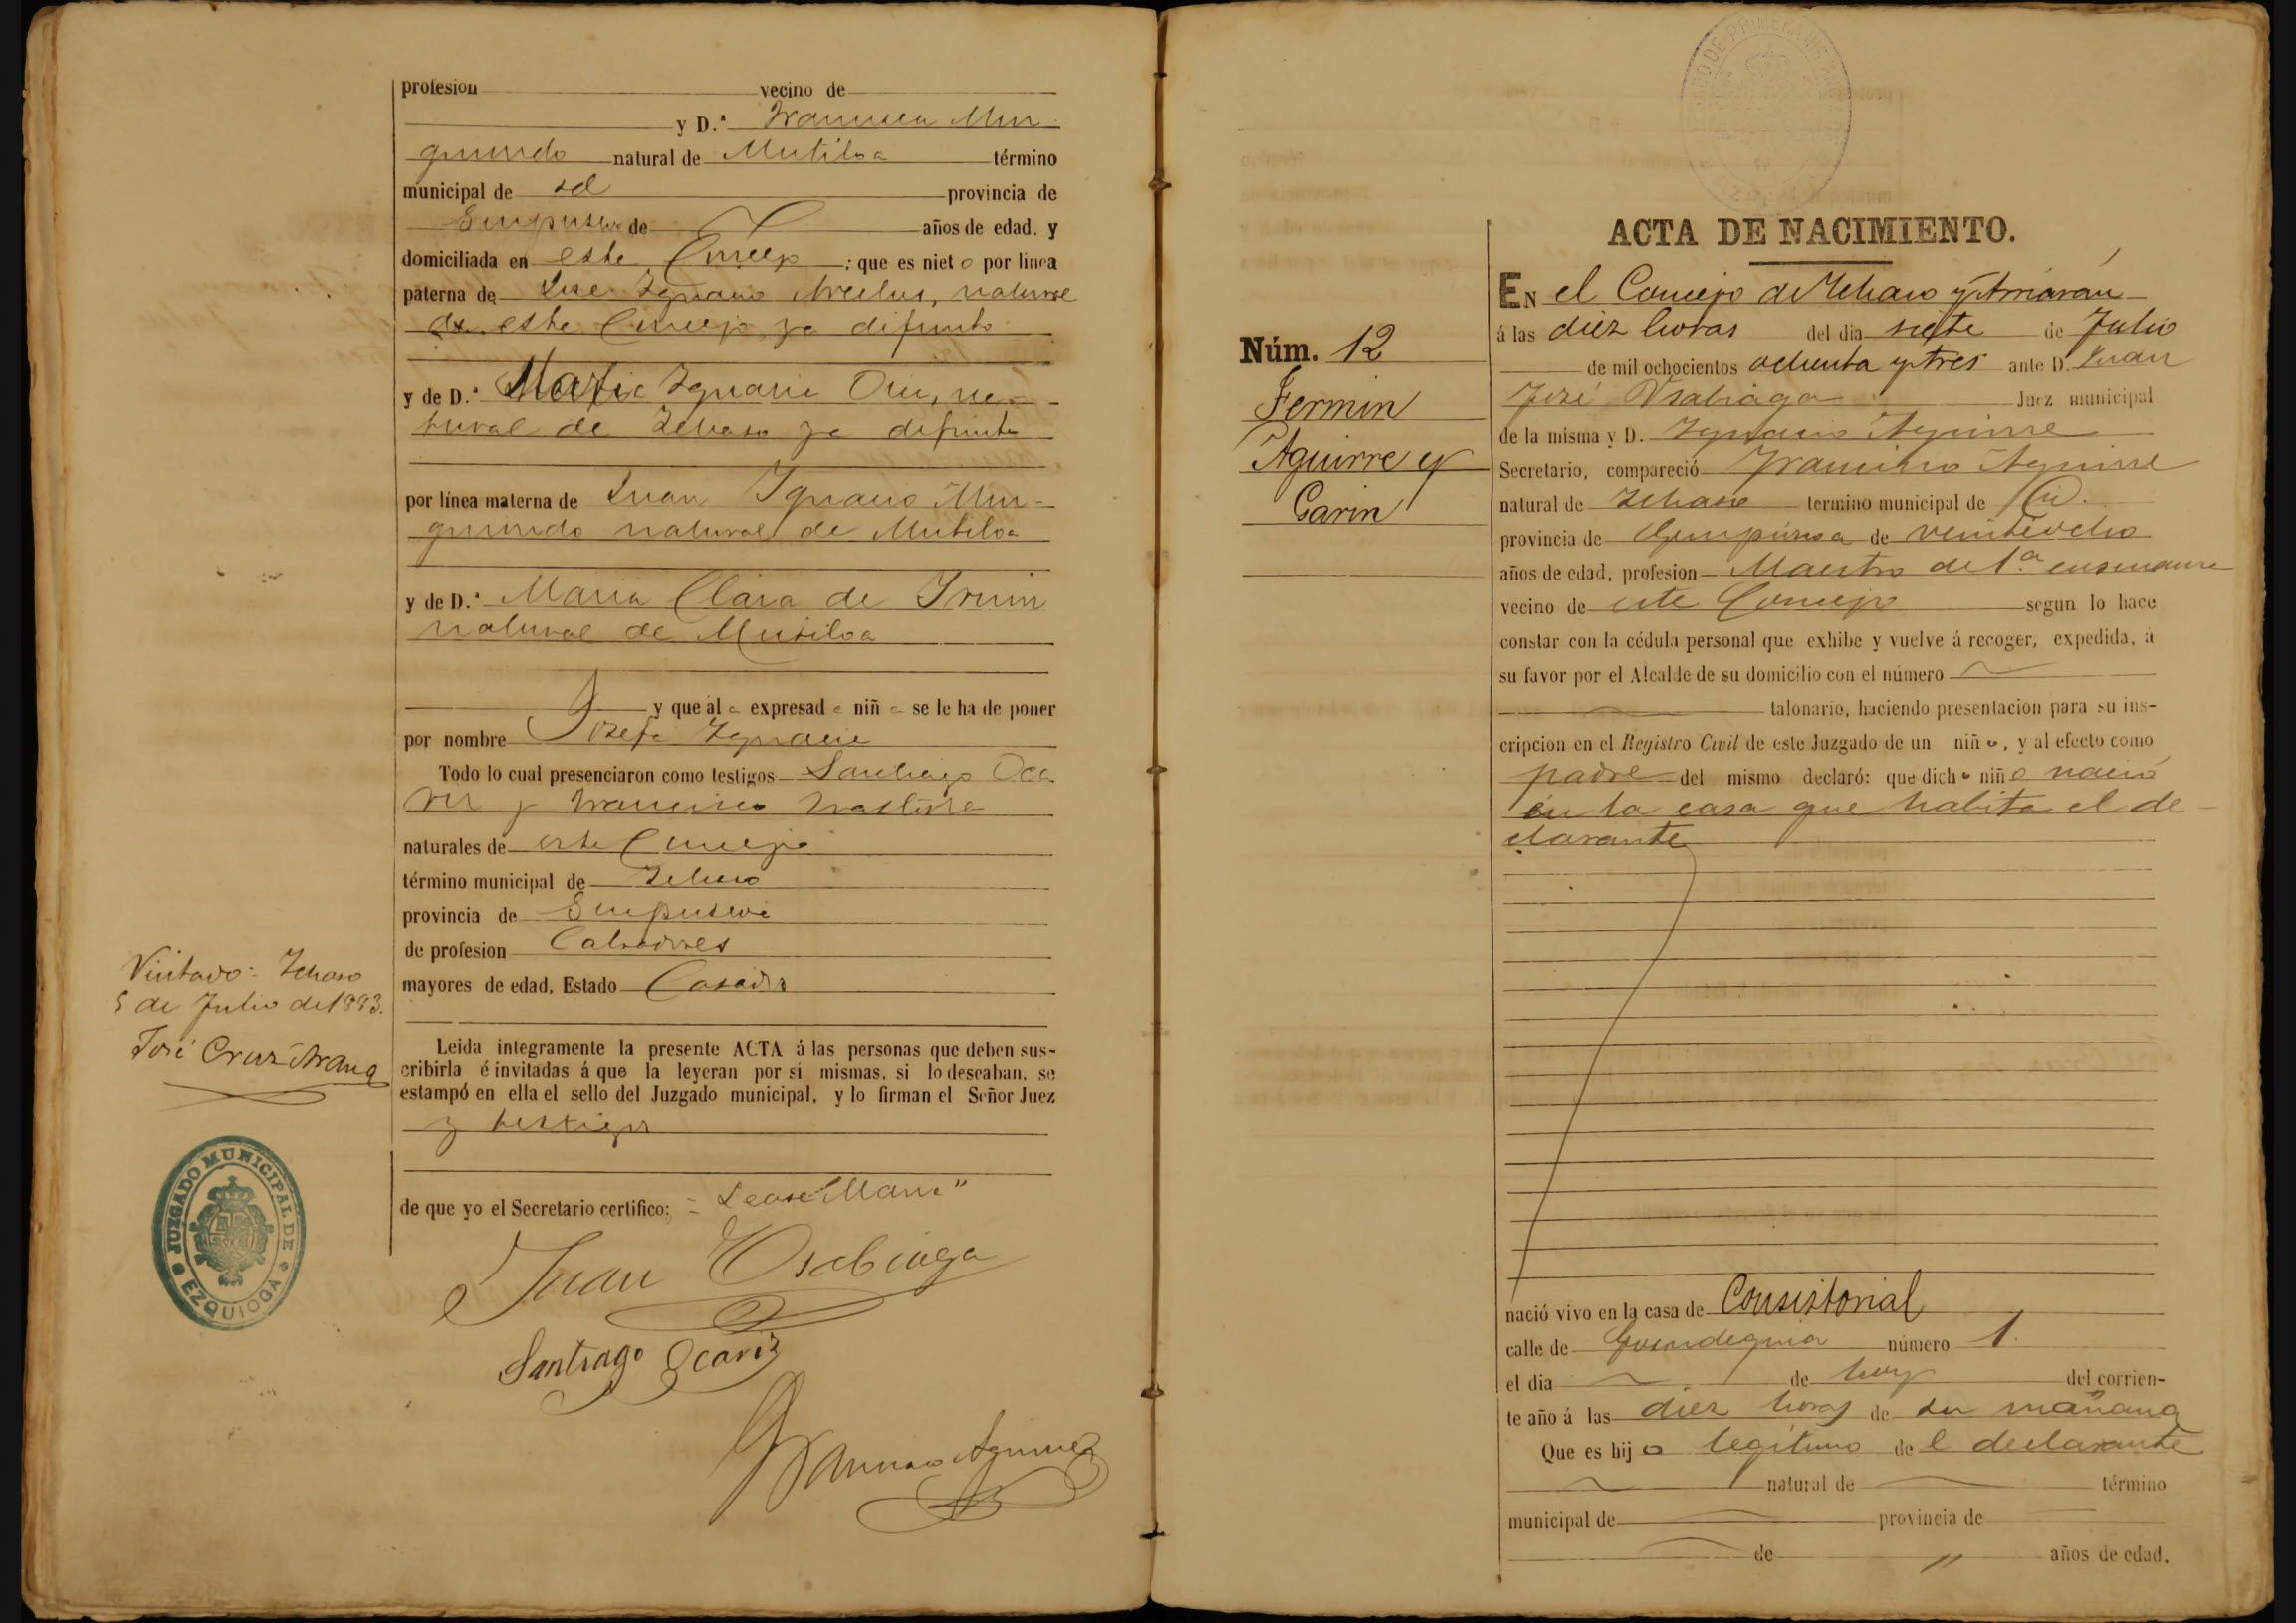 profesion vecino de
y D.ª Francisca Mun
guindo natural de Mutiloa término
municipal de id provincia de
Guipuzcoa de años de edad, y
domiciliada en este Concejo ; que es niet o por línea
paterna de José Ygnacio Arcelus, natural
de este Concejo ya difunto
y de D.ª Maria Ygnacia Oria, na-
tural de Ichaso ya difunta
por línea materna de Juan Ygnacio Mun-
guindo natural de Mutiloa
y de D.ª Maria Clara de
natural de Mutiloa
y que ál a expresad a niñ a se le ha de poner
por nombre Josefa Ygnacia
Todo lo cual presenciaron como testigos Santiago Oca
riz y Francisco
naturales de este Concejo
término municipal de Ichaso
provincia de Guipuzcoa
de profesion Labradores
mayores de edad, Estado Casados
Leida integramente la presente ACTA á las personas que deben sus-
cribirla é invitadas á que la leyeran por si mismas, si lo deseaban, se
estampó en ella el sello del Juzgado municipal, y lo firman el Señor Juez
y testigos
de que yo el Secretario certifico: = Lease "Maria"
Juan Osabiaga
Santiago Ocariz
Francisco
Visitado: Ichaso
5 de Julio de 1883.
José Cruz Arana
JUZGADO MUNICIPAL DE
EZQUIOGA
ACTA DE NACIMIENTO.
Núm. 12
Fermin
Aguirre y
Garin
EN el Concejo de Ichaso y Arriarán
á las diez horas del dia siete de Julio
de mil ochocientos ochenta y tres ante D. Juan
José Osabiaga Juez municipal
de la misma y D. Ygnacio Aguirre
Secretario, compareció Francisco Aguirre
natural de Ichaso termino municipal de id.
provincia de Guipúzcoa de veintiocho
años de edad, profesion Maestro de 1.ª enseñanza
vecino de este Concejo segun lo hace
constar con la cédula personal que exhibe y vuelve á recoger, expedida, á
su favor por el Alcalde de su domicilio con el número
talonario, haciendo presentacion para su ins-
cripcion en el Registro Civil de este Juzgado de un niñ o, y al efecto como
padre del mismo declaró: que dich o niñ o nació
en la casa que habita el de-
clarante
nació vivo en la casa de Consistorial
calle de número 1.
el dia de hoy del corrien-
te año á las diez horas de su mañana
Que es hij o legítimo de l declarante
natural de término
municipal de provincia de
de " años de edad,